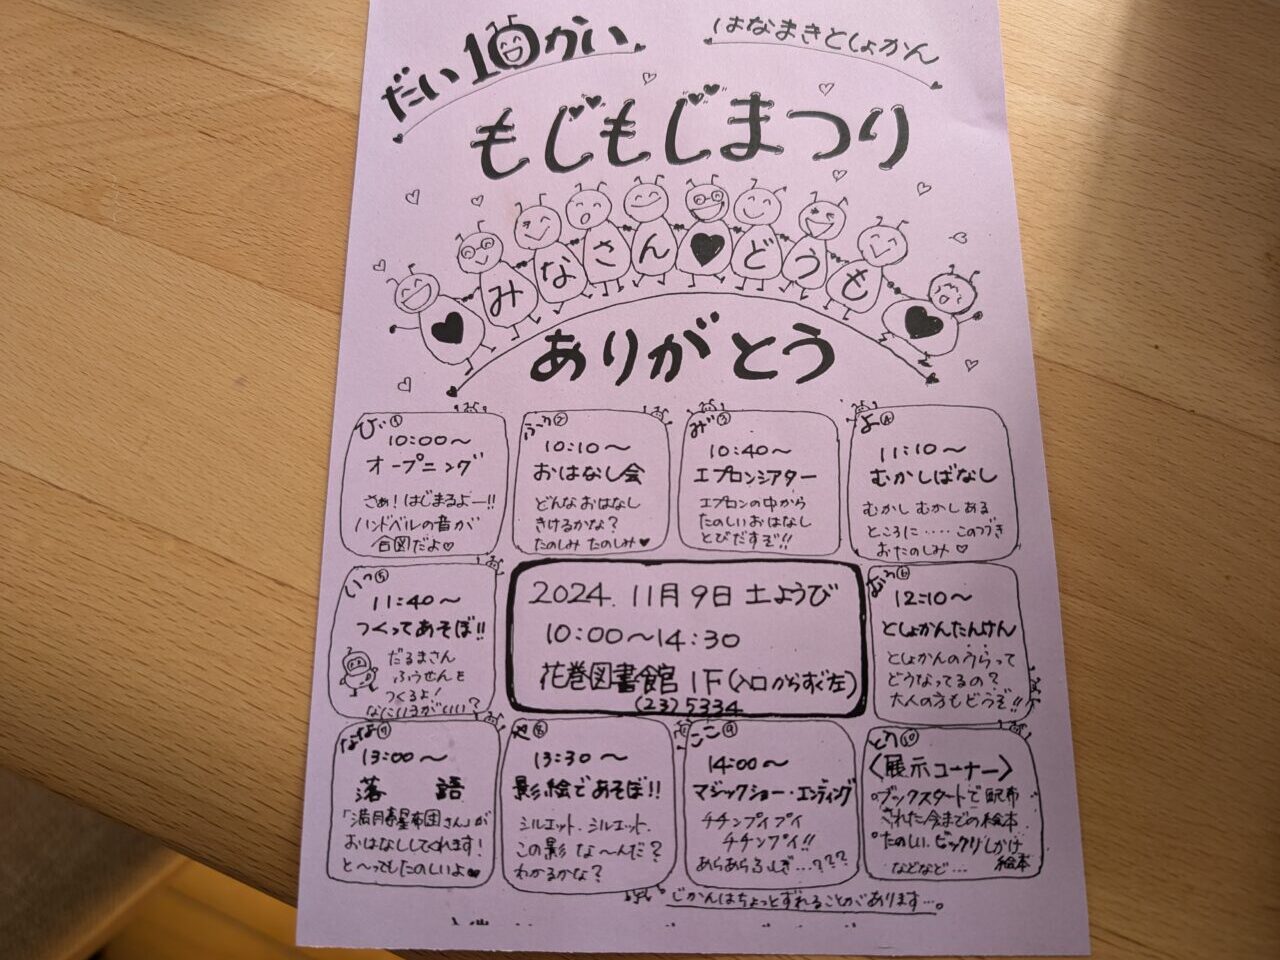 だい10かい
はなまきとしょかん
もじもじまつり
みなさん♥どうも♥
ありがとう
ひ①
10:00〜
オープニング
さぁ！はじまるよー!!
ハンドベルの音が
合図だよ♡
ふ②
10:10〜
おはなし会
どんなおはなし
きけるかな？
たのしみ たのしみ♥
み③
10:40〜
エプロンシアター
エプロンの中から
たのしいおはなし
とびだすぞ!!
よ④
11:10〜
むかしばなし
むかし むかし ある
ところに‥‥ このつづき
おたのしみ♡
いつ⑤
11:40〜
つくってあそぼ!!
だるまさん
ふうせんを
つくるよ！
なにいろがいい？
2024.11月9日 土ようび
10:00〜14:30
花巻図書館 1F(入口からすぐ左)
(23)5334
⑥
12:10〜
としょかんたんけん
としょかんのうらって
どうなってるの？
大人の方もどうぞ!!
なな⑦
13:00〜
落語
「満月寿星布団さん」が
おはなししてくれます！
と〜ってもたのしいよ♥
や⑧
13:30〜
影絵であそぼ!!
シルエット.シルエット.
この影 な〜んだ？
わかるかな？
ここ⑨
14:00〜
マジックショー・エンディング
チチンプイプイ
チチンプイ!!
あらあらふしぎ…???
とう⑩
〈展示コーナー〉
○ブックスタートで配布
された今までの絵本
○たのしい.ビックリしかけ
絵本
などなど…
じかんはちょっとずれることがあります…。